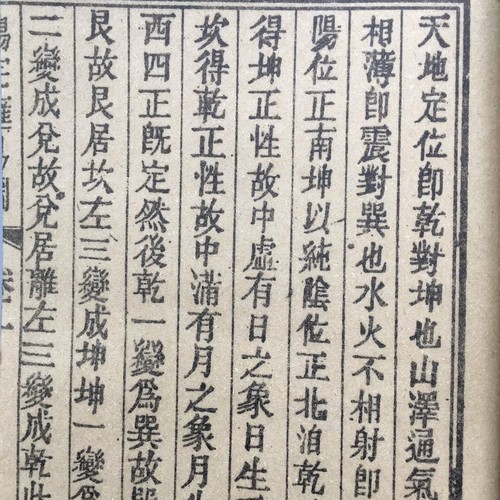 天地定位即乾對坤也山澤通氣
相薄即震對巽也水火不相射即
陽位正南坤以純陰位正北洎乾
得坤正性故中虛有日之象日生
坎得乾正性故中滿有月之象月生
西四正既定然後乾一變爲巽故
艮故艮居坎左三變成坤坤一變爲
二變成兌故兌居離左三變成乾此